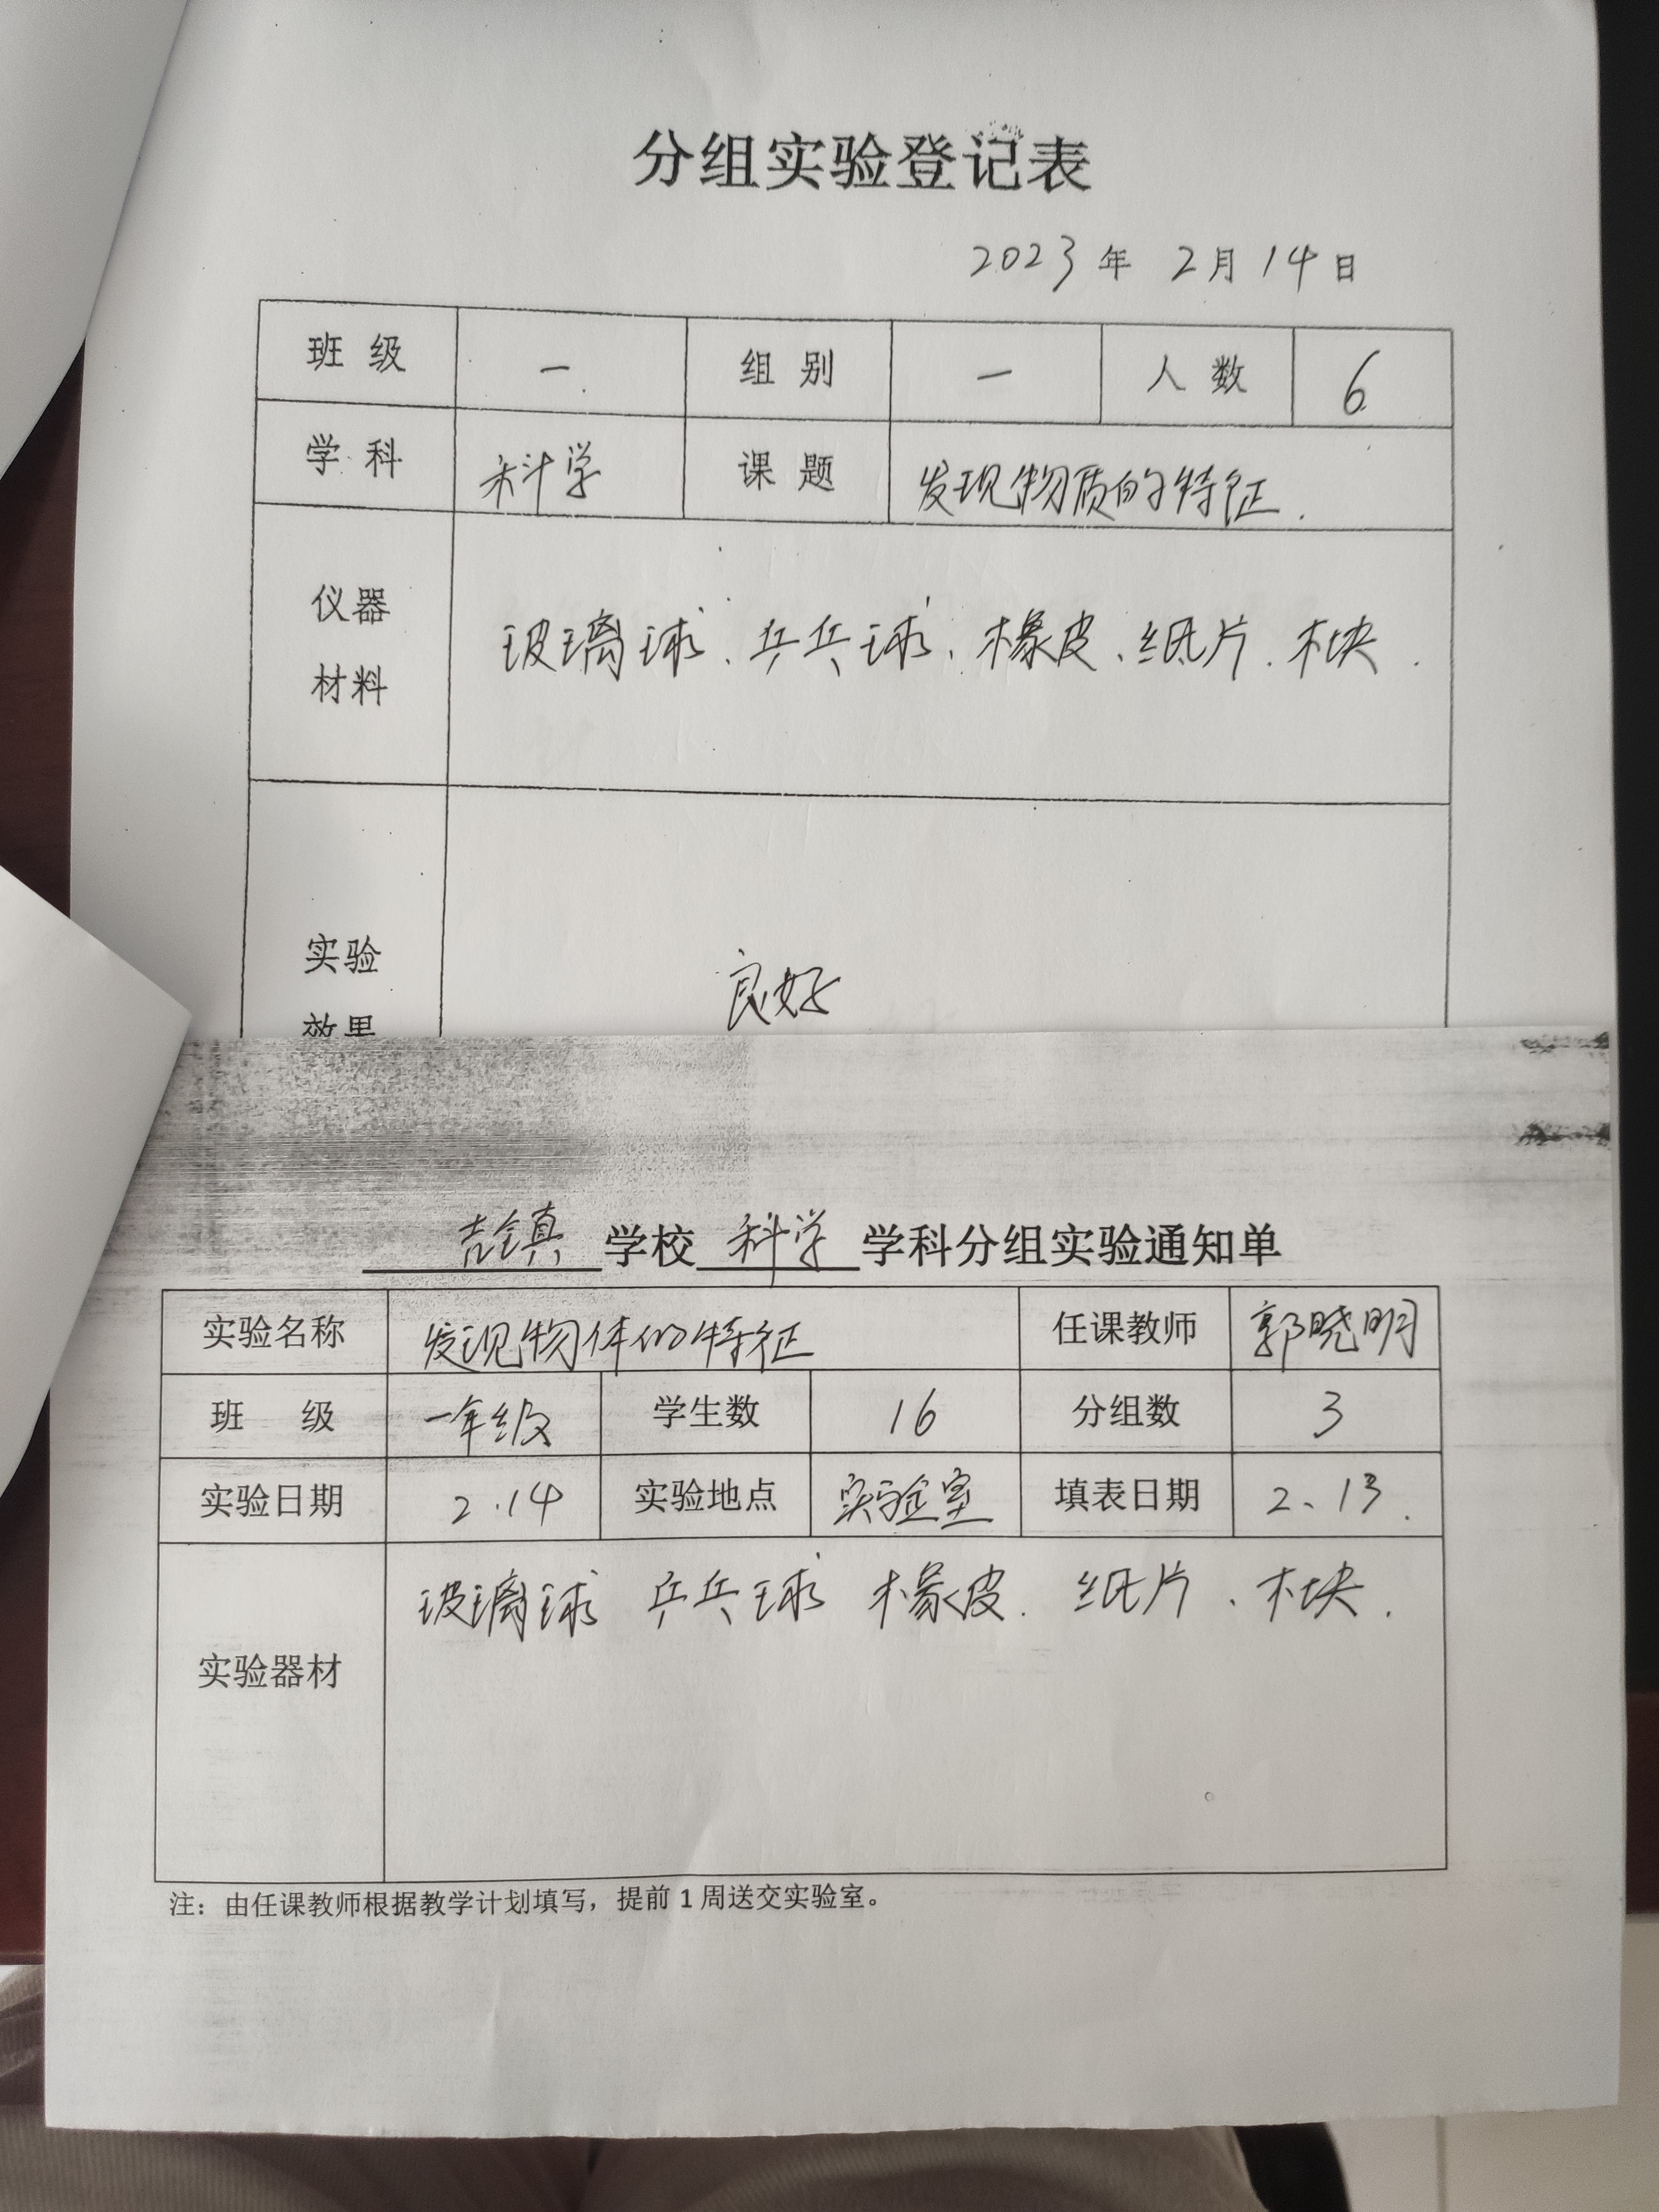 分组实验登记表
2023年 2月14日
班级 一. 组别 一 人数 6
学科 科学 课题 发现物质的特征.
仪器材料 玻璃球、乒乓球、橡皮、纸片、木块.
实验效果 良好
吉镇学校科学学科分组实验通知单
实验名称 发现物体的特征 任课教师 郭晓明
班 级 一年级 学生数 16 分组数 3
实验日期 2.14 实验地点 实验室 填表日期 2、13.
实验器材 玻璃球 乒乓球 橡皮. 纸片、木块.
注：由任课教师根据教学计划填写，提前1周送交实验室。